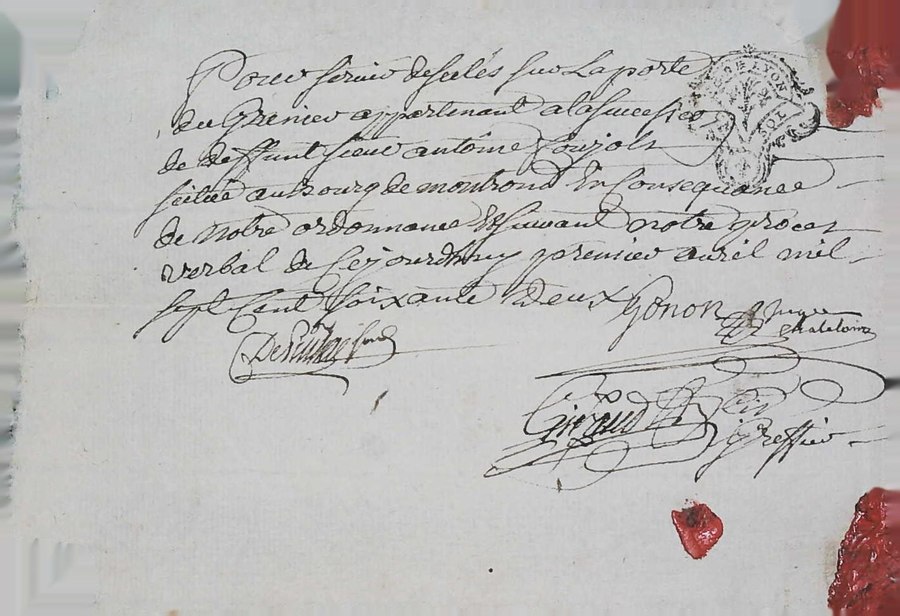 Pour servir de scelés sur La porte
du Grenier appartenant a la succession
de deffunt sieur antoine
scitué au bourg de montrond En Consequance
de notre ordonnance Et suivant notre proces
verbal de Cejourdhuy premier avril mil
sept Cent soixante deux Gonon Juge
chatelain
Giraud
Greffier
LYON
SOL